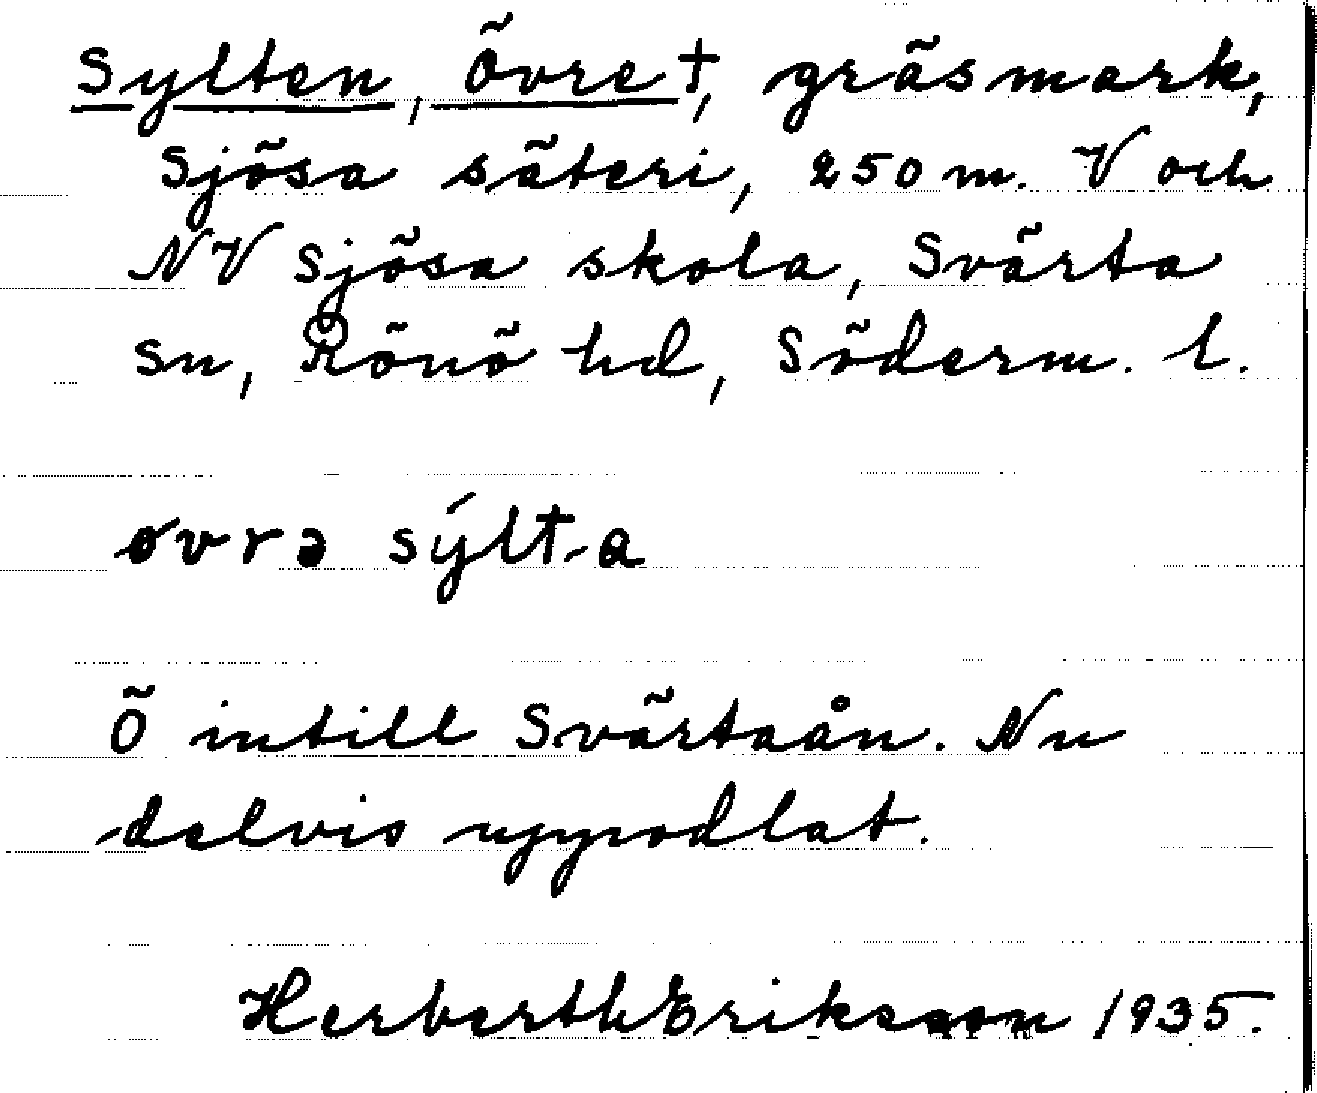 Sylten, Övre †, gräsmark,
Sjösa säteri, 250 m. V och
NV Sjösa skola, Svärta
sn, Rönö hd, Söderm. l.
øvrə sý́lt-a
Ö intill Svärtaån. Nu
delvis uppodlat.
Herberth Eriksson 1935.